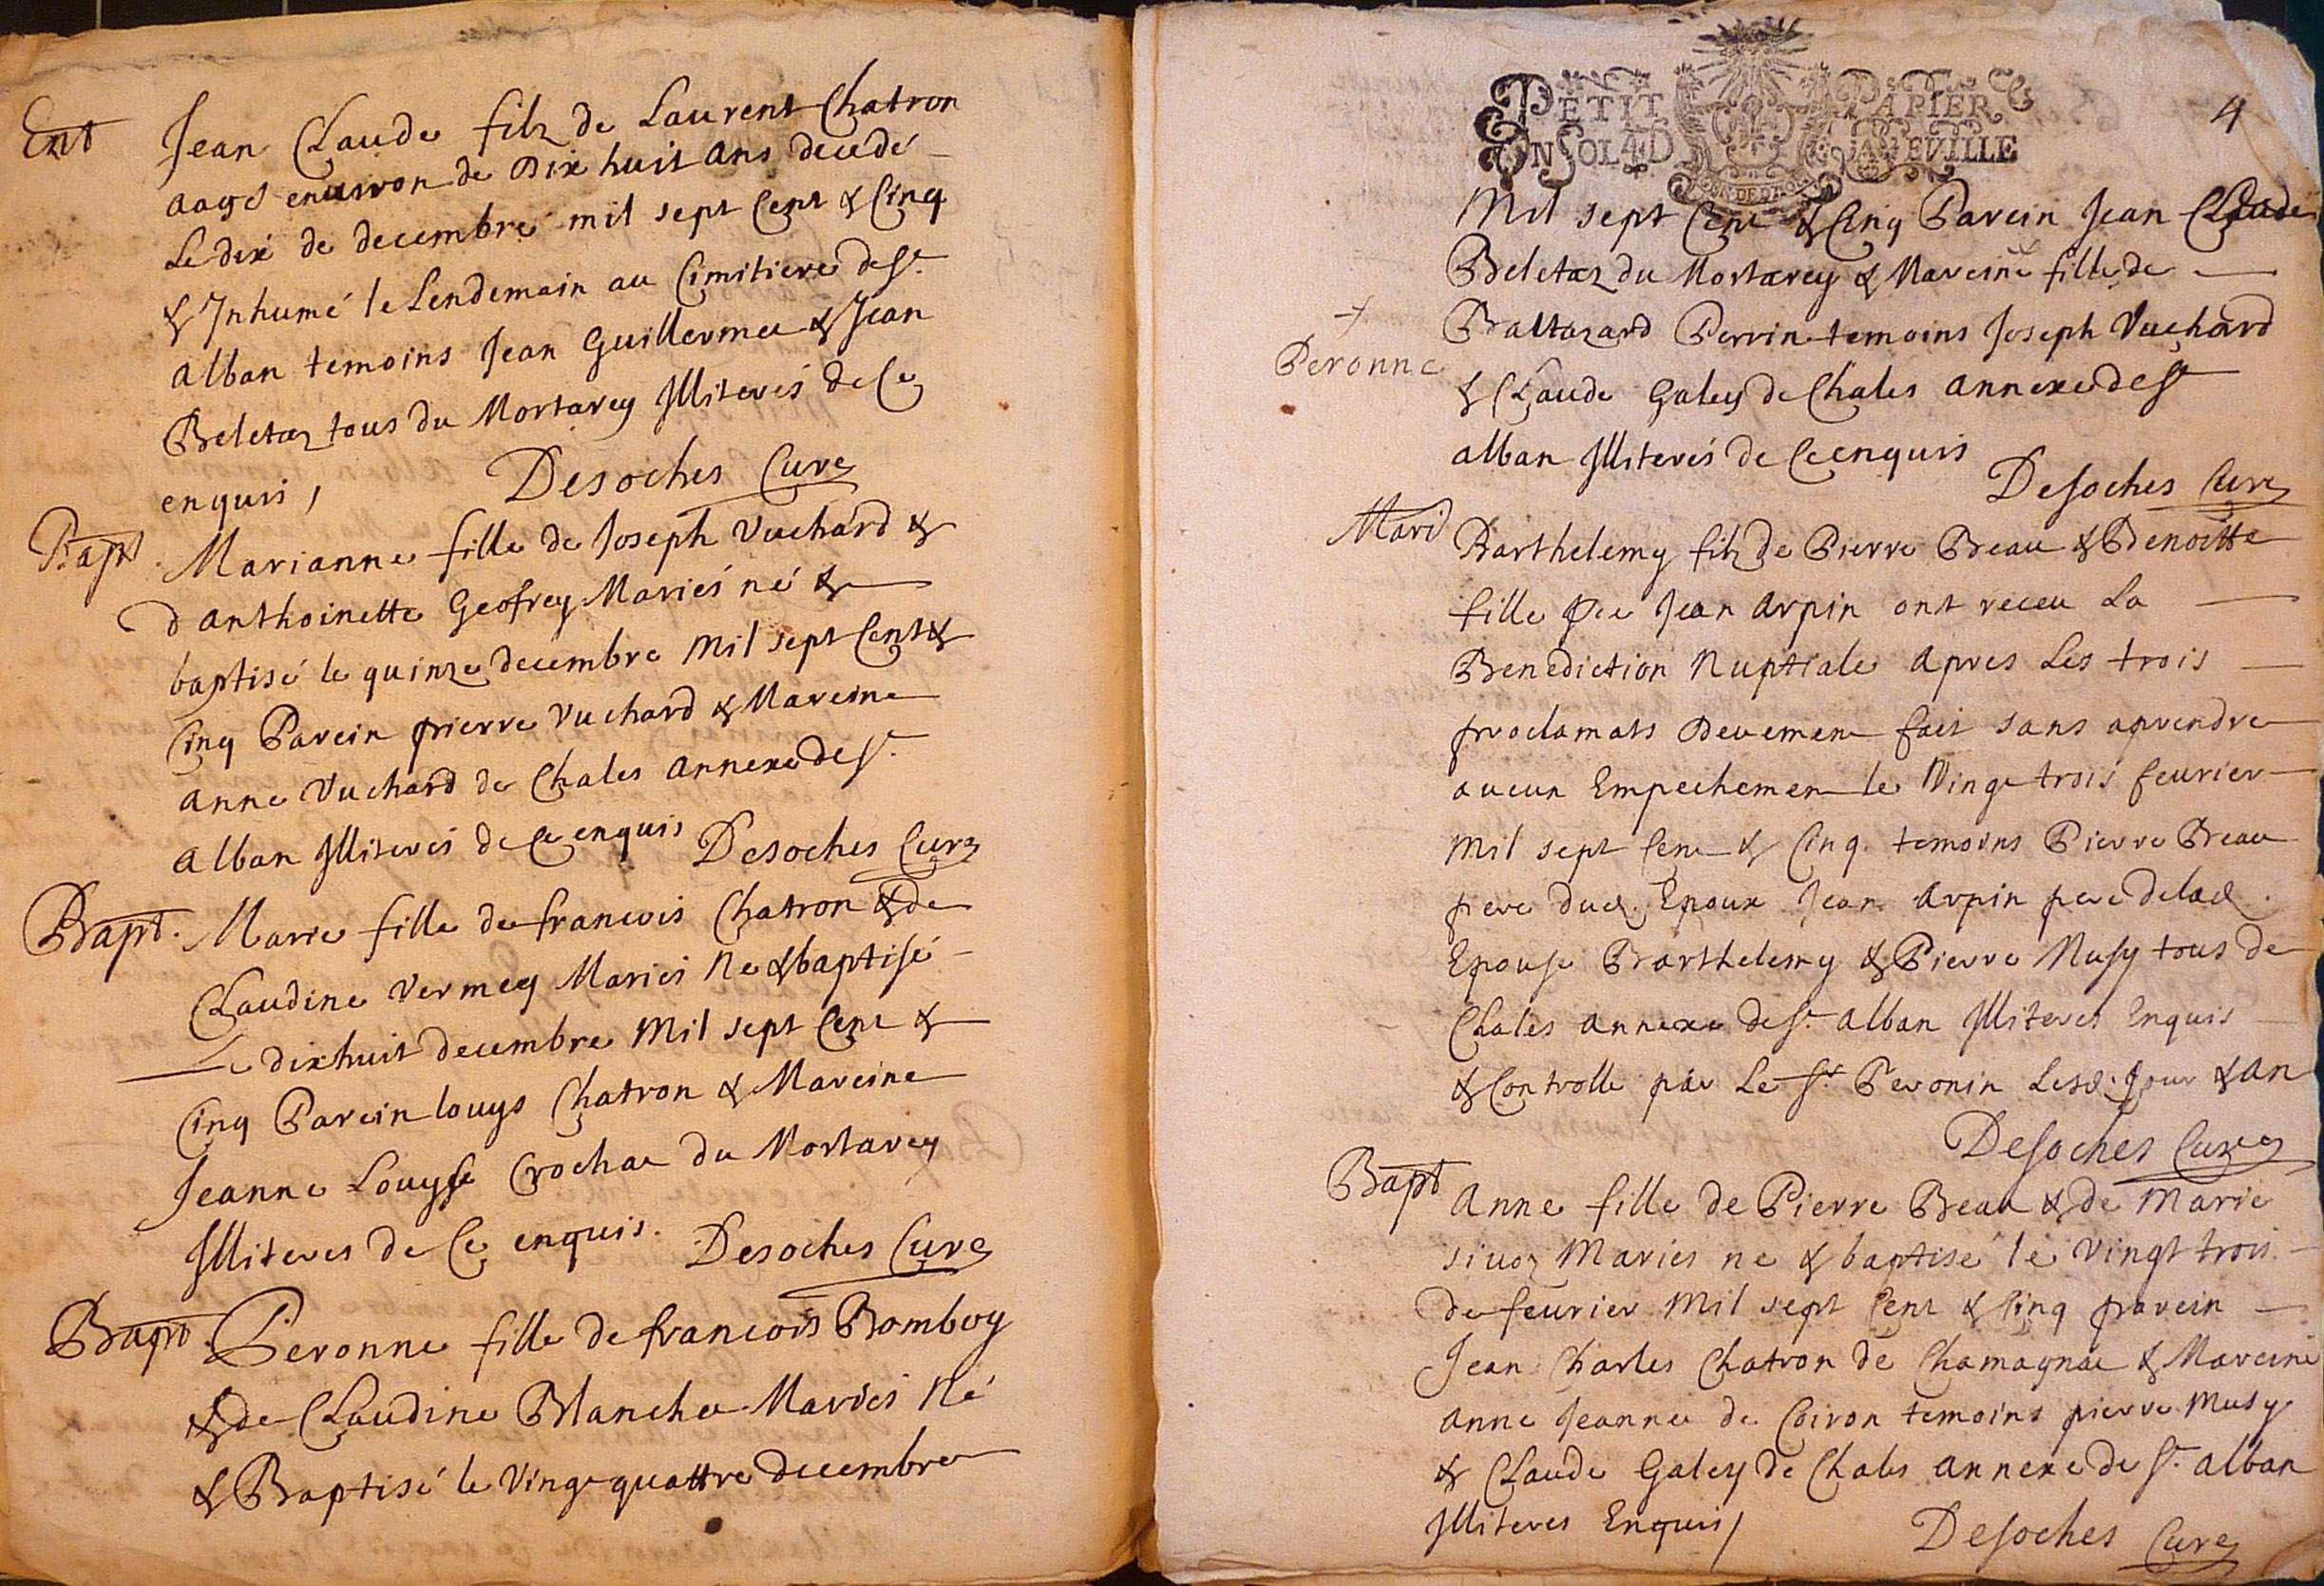 Ent
Jean Claude filz de Laurent Chatron
aagé enuiron de Dix huit ans decedé
Le dix de decembre mil sept Cent & Cinq
& Inhumé le Lendemain au Cimitiere de St.
alban temoins Jean Guillermee & Jean
Beletaz tous du Mortarey Illiterés de Ce
enquis,
Desoches Cure
Bapt
Marianne fille de Joseph Vuchard &
d'anthoinette Geofrey Mariés né &
baptisé le quinze decembre Mil sept Cent &
Cinq Parein pierre Vuchard & Mareine
anne Vuchard de Chales annexe de St.
alban Illiterés de Ce enquis
Desoches Cure
Bapt.
Marie fille de francois Chatron & de
Claudine Vermey Mariés Ne & baptisé
Le dixhuit decembre Mil sept Cent &
Cinq Parein louys Chatron & Mareine
Jeanne Louyse Crochae du Mortarey
Illiteres de Ce enquis.
Desoches Cure
Bapt.
Peronne fille de francois Bomboy
& de Claudine Blanche Mariés Né
& Baptisé le Vingt quattre decembre
PETIT PAPIER
UN SOL 4 D LA FEVILLE
4
Mil sept Cent & Cinq Parein Jean Claude
Beletaz du Mortarey & Mareine fille de
+
Peronne
Baltazard Perrin temoins Joseph Vuchard
& Claude Galey de Chales annexe de St
alban Illiterés de Ce enquis
Desoches Cure
Mari
Barthelemy filz de Pierre Beau & Benoitte
fille de Jean Arpin ont receu La
Benediction Nuptiale apres Les trois
proclamats Deuement fait sans aprendre
aucun Empechement le Vingt trois feurier
Mil sept Cent & Cinq. temoins Pierre Beau
pere dud. Epoux Jean Arpin pere de lad.
Epouse Barthelemy & Pierre Musy tous de
Chales annexe de St. alban Illiteres Enquis
& Controlle par Le Sr. Peronin Lesd. Jour & an
Desoches Cure
Bapt
Anne fille de Pierre Beau & de Marie
siuoz Mariés ne & baptisé le Vingt trois
de feurier Mil sept Cent & Cinq parein
Jean Charles Chatron de Chamagnae & Mareine
anne Jeannee de Coiron temoins pierre Musy
& Claude Galey de Chales annexe de St. alban
Illiteres Enquis
Desoches Cure